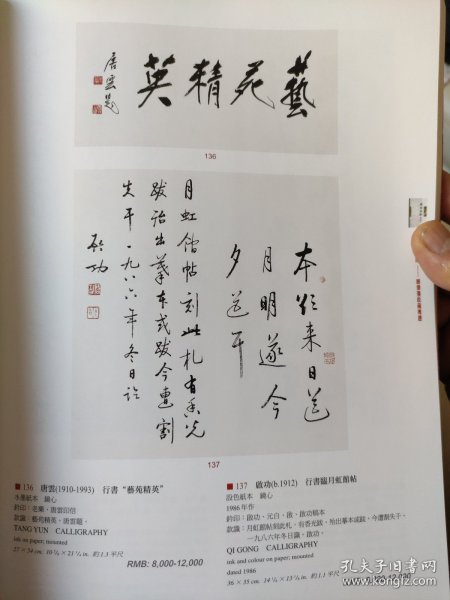 藝苑精英
唐雲題
136
本欲来日送
月明遂今
夕送耳
月虹館帖刻此札有香光
跋詒出摹本或跋今遭割
失乎一九八六年冬日識
启功
137
136 唐雲(1910-1993) 行書“藝苑精英”
水墨紙本 鏡心
鈐印：老藥、唐雲印信
款識：藝苑精英。唐雲題。
TANG YUN CALLIGRAPHY
ink on paper; mounted
27 × 34 cm. 10 ⅝ × 21 ¼ in. 約1.3 平尺
RMB: 8,000-12,000
137 啟功(b.1912) 行書臨月虹館帖
設色紙本 鏡心
1986年作
鈐印：啟功、元白、啟、啟功稿本
款識：月虹館帖刻此札，有香光跋，殆出摹本或跋，今遭割失乎。
一九八六年冬日識，啟功。
QI GONG CALLIGRAPHY
ink and colour on paper; mounted
dated 1986
36 × 35 cm. 14 ⅛ × 13 ¾ in. 約1.1 平尺
孔夫子旧书网